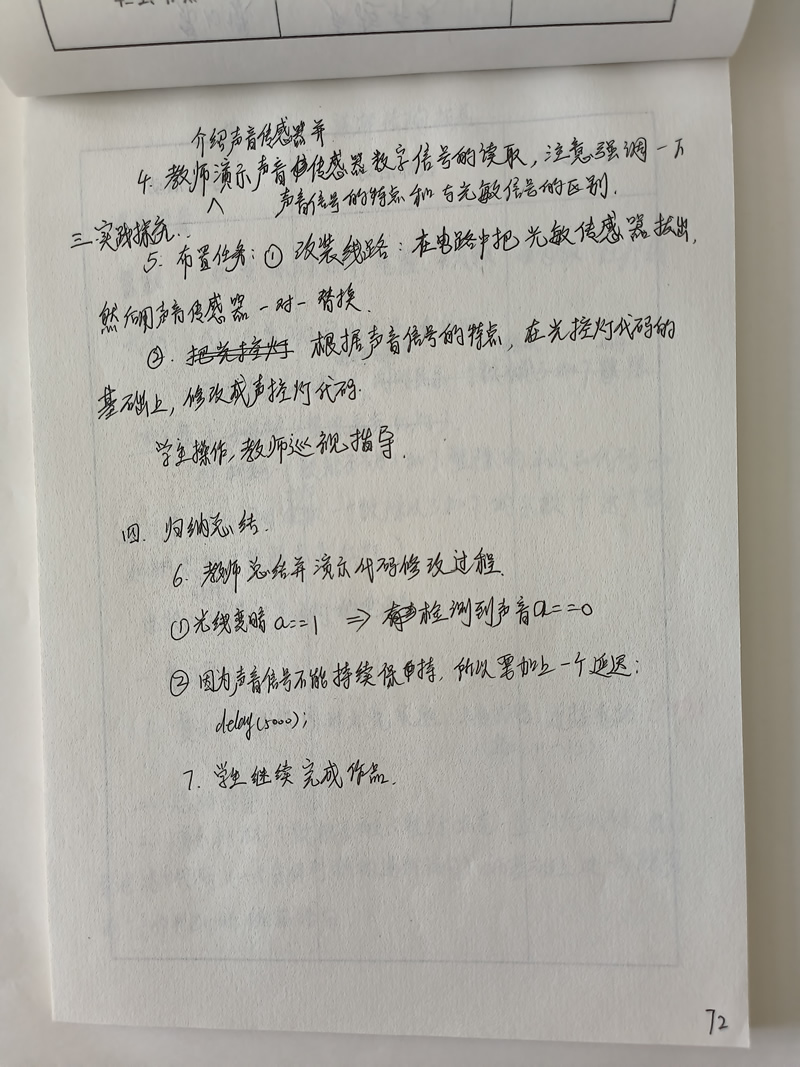 介绍声音传感器并
4. 教师演示声音传感器数字信号的读取，注意强调一下
声音信号的特点和与光敏信号的区别.
三.实践探究..
5. 布置任务：① 改装线路：在电路中把光敏传感器拔出，
然后用声音传感器一对一替换.
②. 把光控灯 根据声音信号的特点，在光控灯代码的
基础上，修改成声控灯代码.
学生操作，教师巡视指导.
四. 归纳总结.
6. 教师总结并演示代码修改过程.
①光线变暗 a==1 => 检测到声音a==0
②因为声音信号不能持续保持，所以需加上一个延迟：
delay(5000);
7. 学生继续完成作品.
72